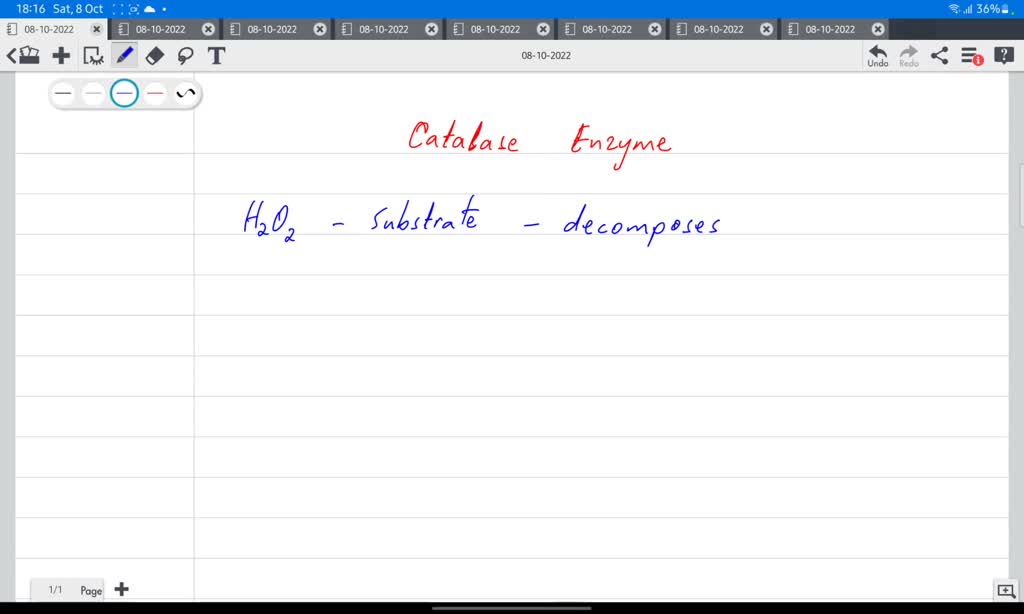 18:16 Sat, 8 Oct 36%
08-10-2022 08-10-2022 08-10-2022 08-10-2022 08-10-2022 08-10-2022 08-10-2022 08-10-2022
T 08-10-2022 Undo Redo 1 ?
Catabase Enzyme
H₂O₂ - substrate - decomposes
1/1 Page